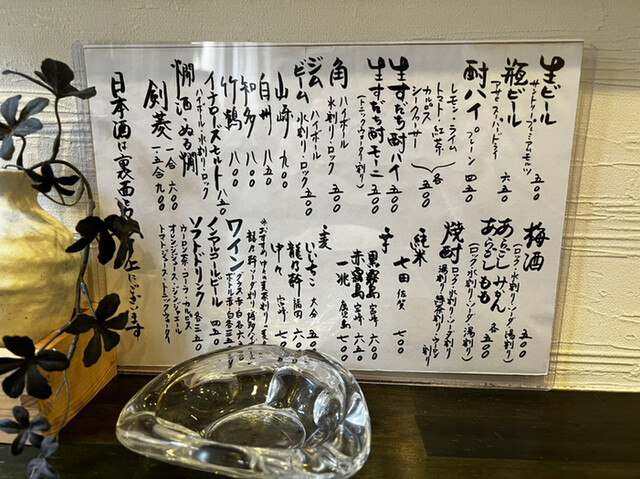 生ビール
サントリープレミアムモルツ 五〇〇
瓶ビール
アサヒスーパードライ 六五〇
酎ハイ プレーン 四五〇
レモン・ライム
トマト・紅茶
カルピス
シークァーサー
各五〇〇
生すだち酎ハイ 五〇〇
生すだち酎モーニ 五〇〇
(トニックウォーター割り)
角 ハイボール
水割り・ロック 五〇〇
ジム ハイボール
ビーム 水割り・ロック 五〇〇
山崎 九〇〇
白州 八五〇
知多 八〇〇
竹鶴 八〇〇
イチローズモルト 八五〇
ハイボール・水割り・ロック
燗酒・ぬる燗
剣菱 一合 六〇〇
一・五合 九〇〇
日本酒は裏面
上にございます
梅酒
(ロック・水割り・ソーダ・湯割り) 五〇〇
あらごしみかん
あらごしもも 各五〇〇
(ロック・水割り・ソーダ割り)
焼酎 ロック・水割り・ソーダ割り
湯割り・緑茶割り・ウーロン割り
純米
七田 佐賀 七〇〇
芋
黒霧島 宮崎 六〇〇
赤霧島 宮崎 六五〇
一兆 鹿児島 七〇〇
麦
いいちこ 大分 五〇〇
龍乃軒 福岡 六
中々 宮崎 七
ワイン
グラス 赤白 各六
ボトル 赤白 各三五
ノンアルコールビール 四五〇
ソフトドリンク 各三五〇
ウーロン茶・コーラ・カルピス
オレンジジュース・ジンジャエール
トマトジュース・トニックウォーター